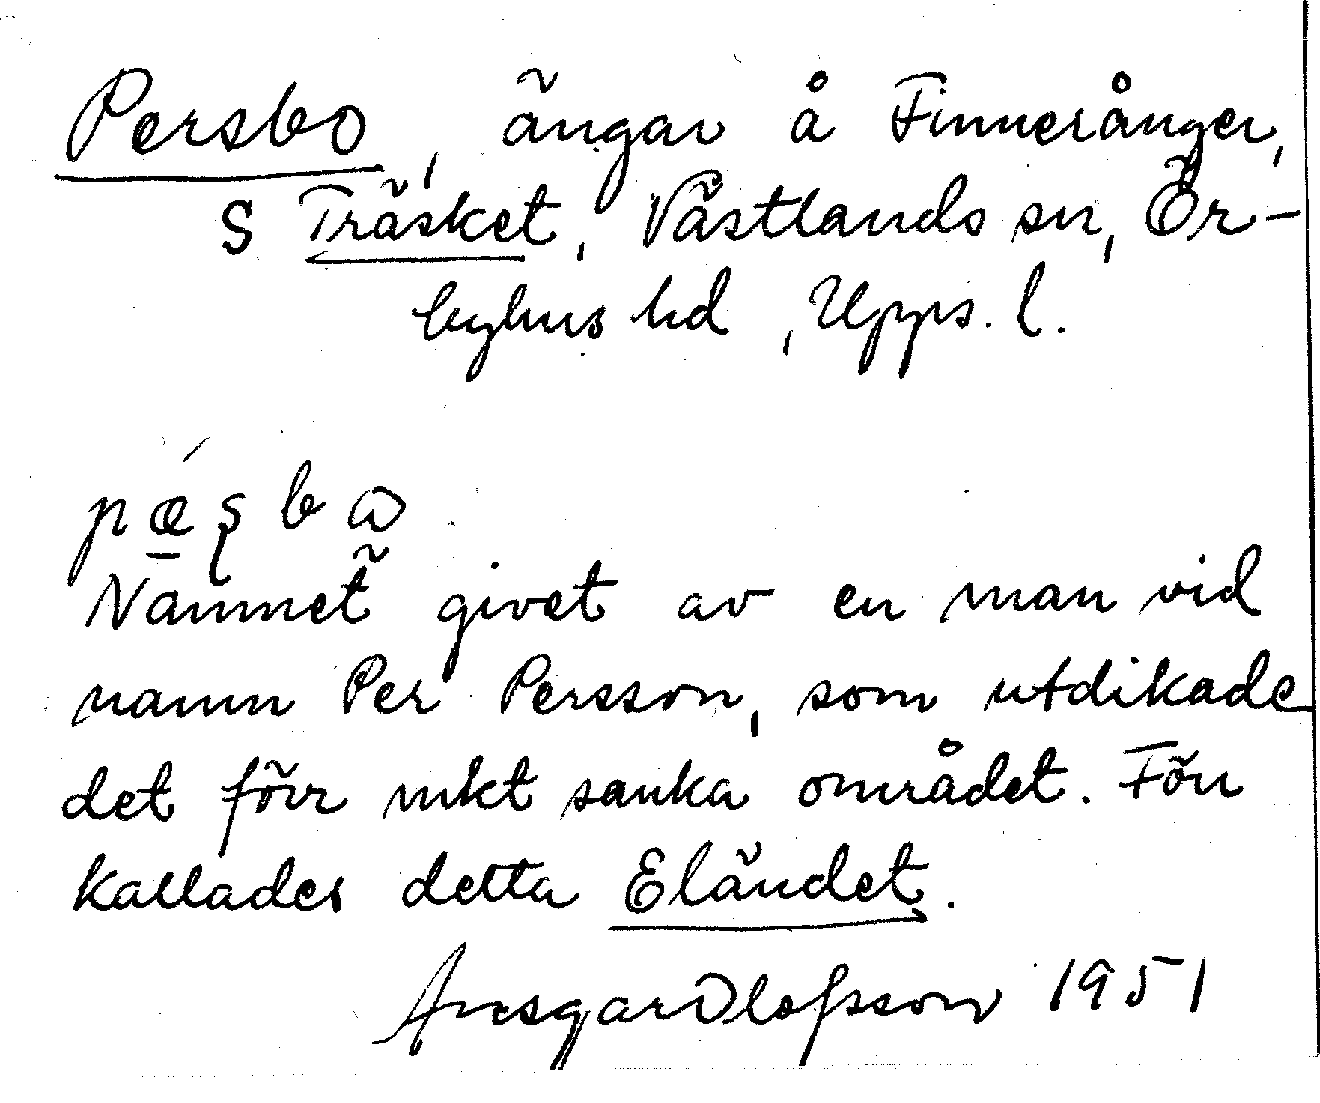 Persbo, ängar å Finneränger,
S Träsket, Västlands sn, Ör-
byhus hd, Upps. l.
pǽ̱ʂbω
Namnet givet av en man vid
namn Per Persson, som utdikade
det förr mkt sanka området. Förr
kallades detta Eländet.
Ansgar Olofsson 1951